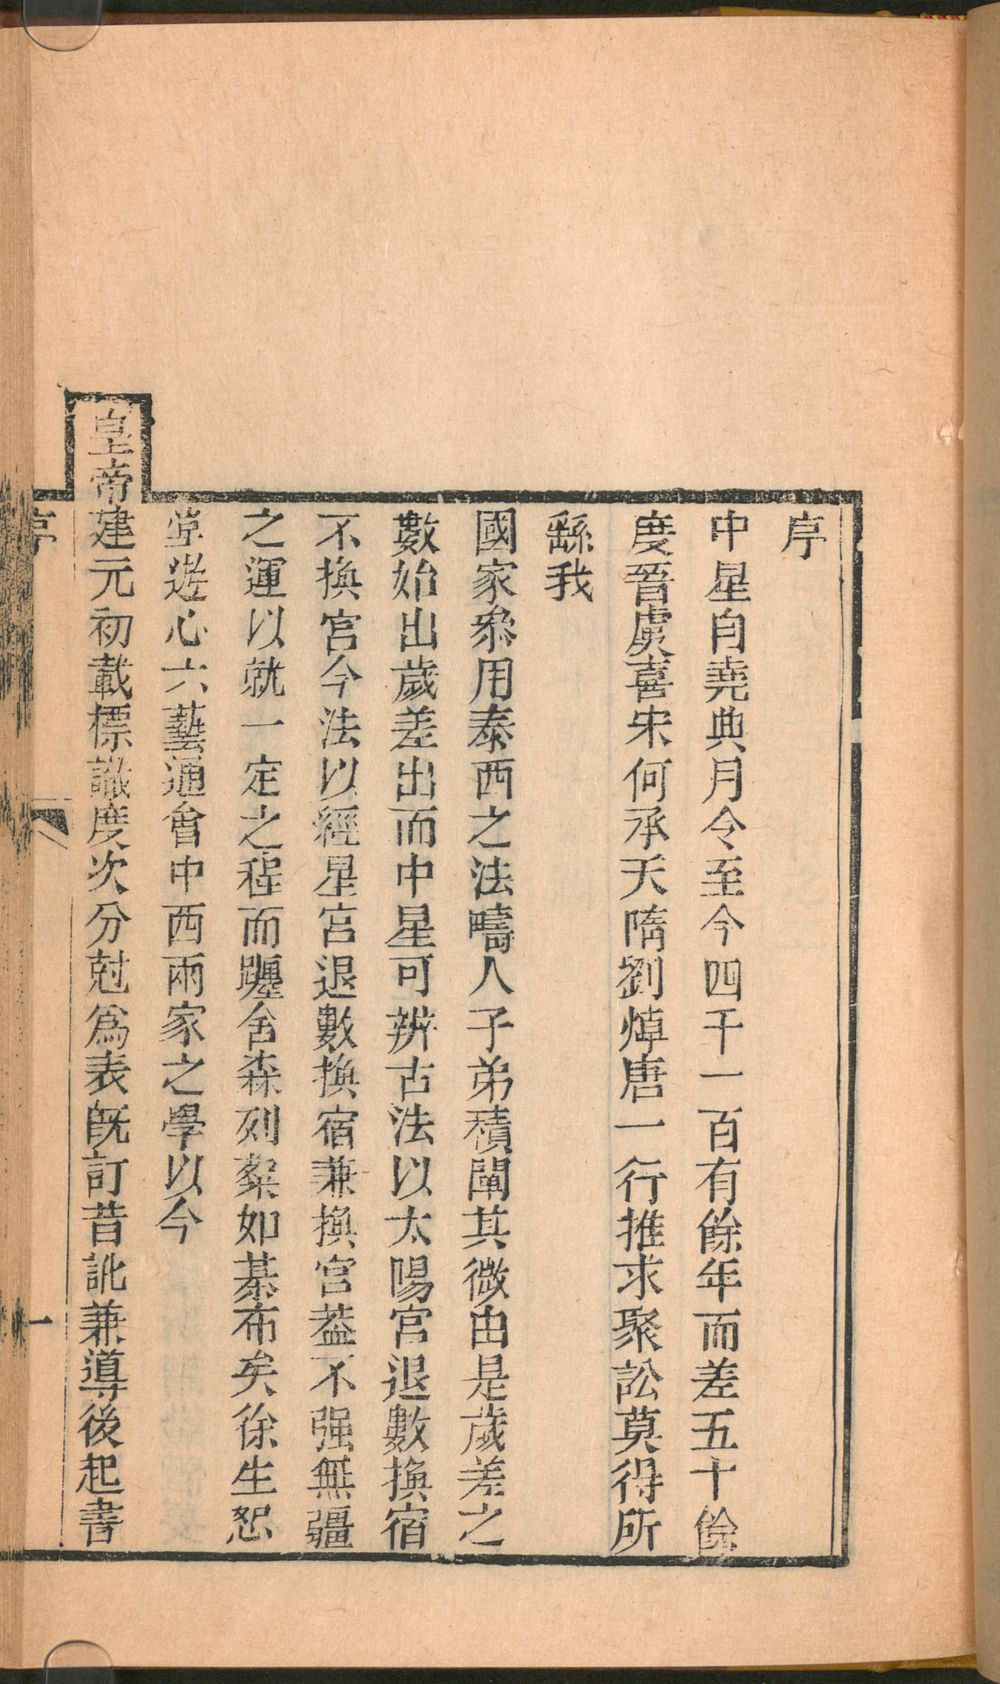 序
中星自堯典月令至今四千一百有餘年而差五十餘
度晉虞喜宋何承天隋劉焯唐一行推求聚訟莫得所
繇我
國家叅用泰西之法疇人子弟積闡其微由是歲差之
數始出歲差出而中星可辨古法以太陽宮退數換宿
不換宮今法以經星宮退數換宿兼換宮葢不强無疆
之運以就一定之程而躔舍森列粲如棊布矣徐生恕
堂遊心六藝通會中西兩家之學以今
皇帝建元初載標識度次分尅爲表旣訂昔訛兼導後起書
序
一